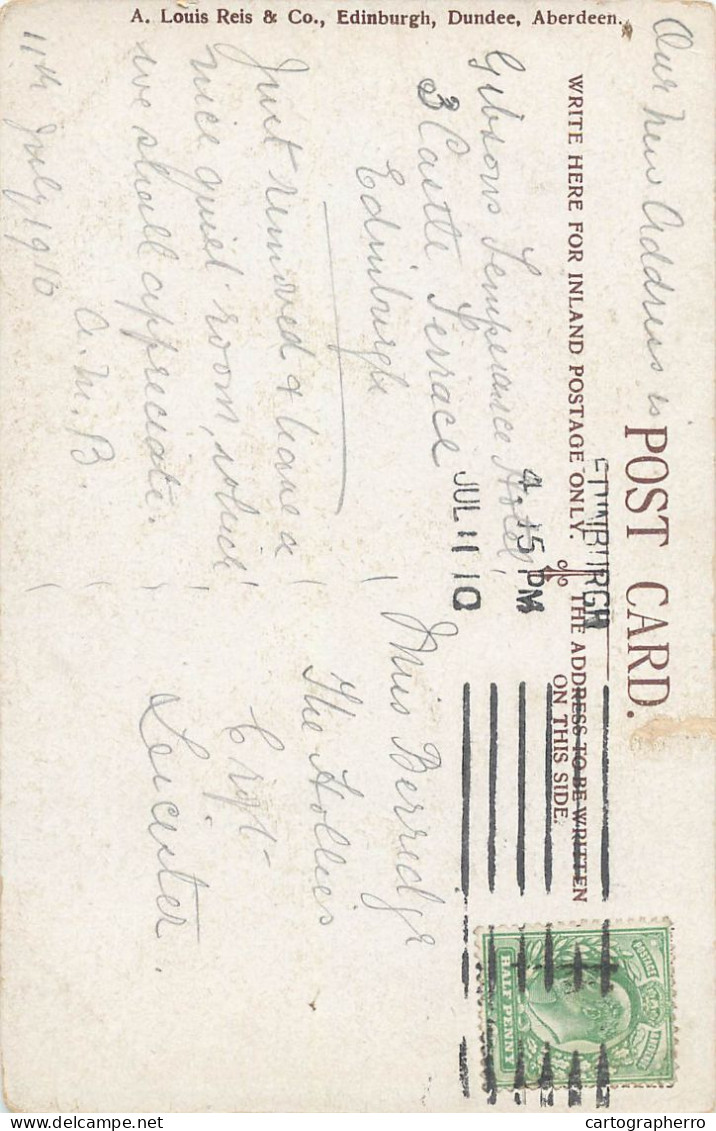 A. Louis Reis & Co., Edinburgh, Dundee, Aberdeen.
POST CARD.
WRITE HERE FOR INLAND POSTAGE ONLY.
THE ADDRESS TO BE WRITTEN
ON THIS SIDE.
EDINBURGH
4.15 PM
JUL 11 10
Our New Address is
Gibsons Temperance Hotel
3 Castle Terrace
Edinburgh
Just removed & have a
nice quiet room, which
we shall appreciate.
A.M.B.
11th July 1910
Miss Berridge
The Hollies
Croft
Leicester.
POSTAGE
REVENUE
HALF PENNY
delcampe.net
cartographerro